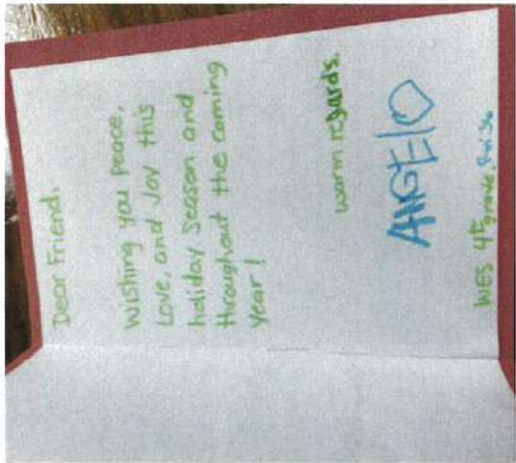 Dear Friend,
Wishing you peace,
Love, and Joy this
holiday season and
throughout the coming
year!
warm regards,
ANGElO
WES 4th grade,